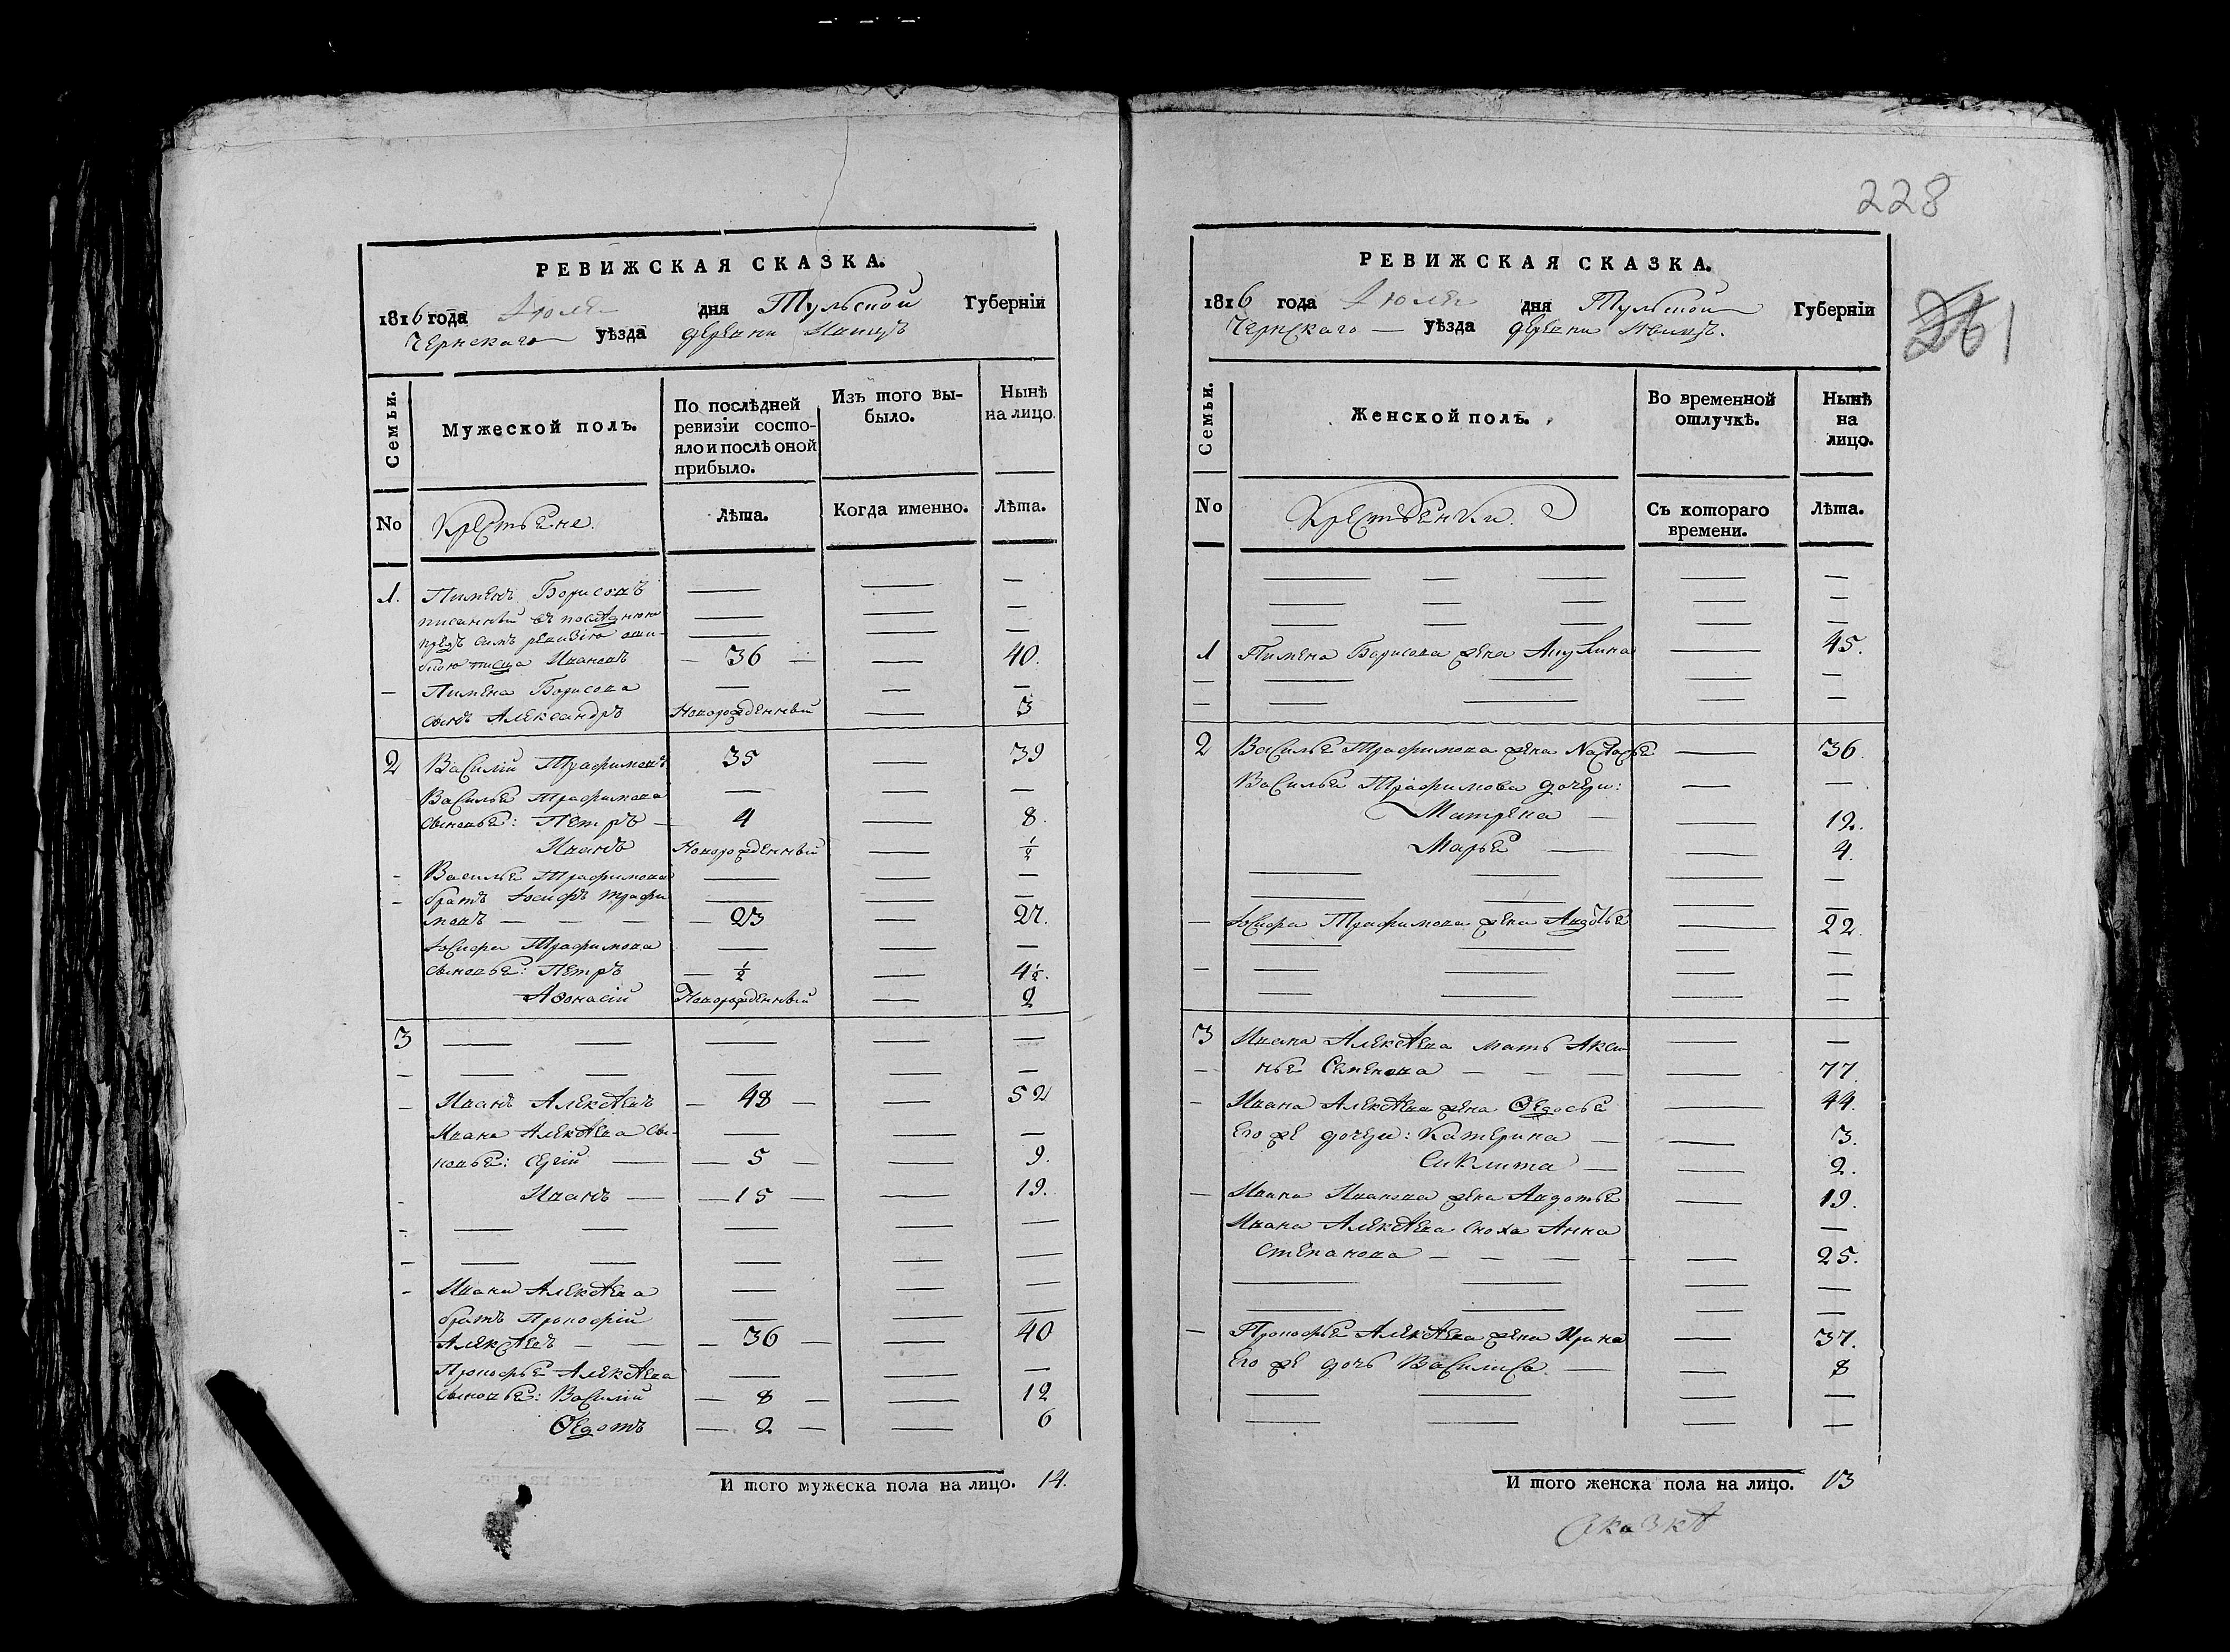 РЕВИЖСКАЯ СКАЗКА.
1816 года Июля дня Тульской Губернїи
Чернскаго уѣзда деревни
Семьи.
Мужеской полъ.
По послѣдней ревизїи состо-
яло и послѣ оной
прибыло.
Изъ того вы-
было.
Нынѣ
на лицо.
No
Крестьяне.
Лѣта.
Когда именно.
Лѣта.
1. Пименъ Борисовъ — — —
писанный въ последнюю — — —
предъ симъ ревизію оши- — — —
бкою писца Ивановъ — 36 — — 40.
— Пимена Борисова — — —
сынъ Александръ Новорожденный — 3
2 Василій Трафимовъ 35 — 39
Василья Трафимова — — —
сыновья: Петръ — 4 — 8.
Иванъ Новорожденный — ½
- Василья Трафимова — — —
- братъ Іосифъ Трафи — — —
мовъ — — — — 23 — 27.
Іосифа Трафимова — — —
сыновья: Петръ — ½ — 4½.
Афонасій Новорожденный — 2
3 — — — — —
- — — — — —
- Иванъ Алексѣевъ — 48 — — 52
Ивана Алексѣева сы- — — —
новья: Сергій — — 5 — — 9.
- Иванъ — — 15 — — 19.
- — — — — —
- — — — — —
- Ивана Алексѣева — — —
братъ Прокофій — — —
Алексѣевъ — — — 36 — — 40
Прокофья Алексѣева — — —
сыновья: Василій — 8 — — 12
Ѳедотъ — 2 — — 6
И того мужеска пола на лицо. 14.
228
261
РЕВИЖСКАЯ СКАЗКА.
1816 года Июля дня Тульской Губернїи
Чернскаго — уѣзда деревни
Семьи.
Женской полъ.
Во временной
отлучкѣ.
Нынѣ
на
лицо.
No
Крестьянки.
Съ котораго
времени.
Лѣта.
— — — — —
— — — — —
— — — — —
1 Пимена Борисова жена Акулина — 45.
— — — — —
— — — — —
2 Василья Трафимова жена Настасья — 36.
Василья Трафимова дочери: — —
Матрена — — 12.
Марья — — 4.
— — — —
— — — —
— Іосифа Трафимова жена Авдотья — 22.
— — — —
— — — — —
— — — —
3 Ивана Алексѣева мать Акси- — —
— нья Семенова — — — — 77.
- Ивана Алексѣева жена Ѳедосья — 44.
Его же дочери: Катерина — — 3.
Сиклита — — 2.
— Ивана Иванова жена Авдотья — 19.
Ивана Алексѣева сноха Анна —
Степанова — — — — — 25.
— — — —
— — — —
— Прокофья Алексѣева жена Ирина — 37.
Его же дочь Василиса. — — 8
— — — —
— — — —
И того женска пола на лицо. 13
сказкѣ